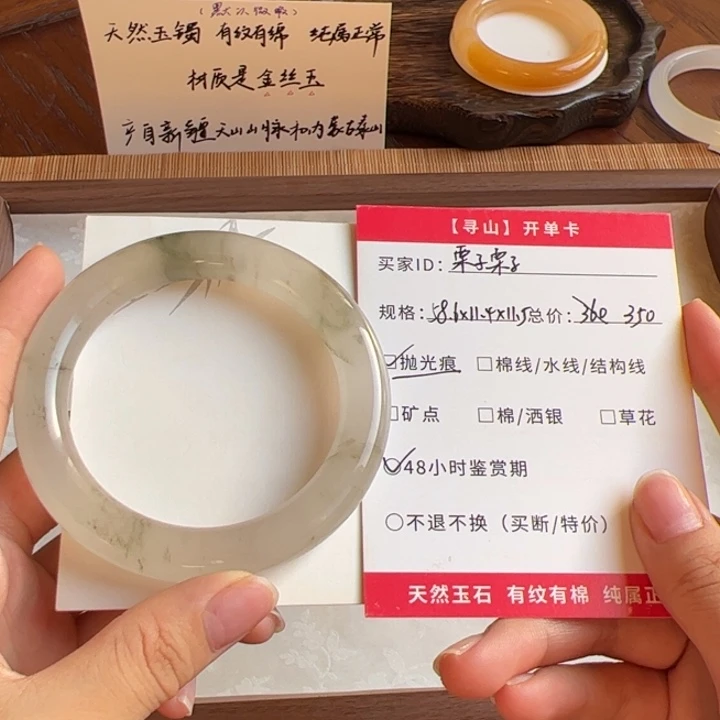 (默认微瑕)
天然玉镯 有纹有绵 纯属正常
材质是金丝玉
产自新疆天山山脉和内蒙古泰山
【寻山】开单卡
买家ID: 栗子栗子
规格: 58.6x11.4x11.5 总价: 360 350
☑抛光痕 □棉线/水线/结构线
□矿点 □棉/洒银 □草花
48小时鉴赏期
○不退不换（买断/特价）
天然玉石 有纹有棉 纯属正